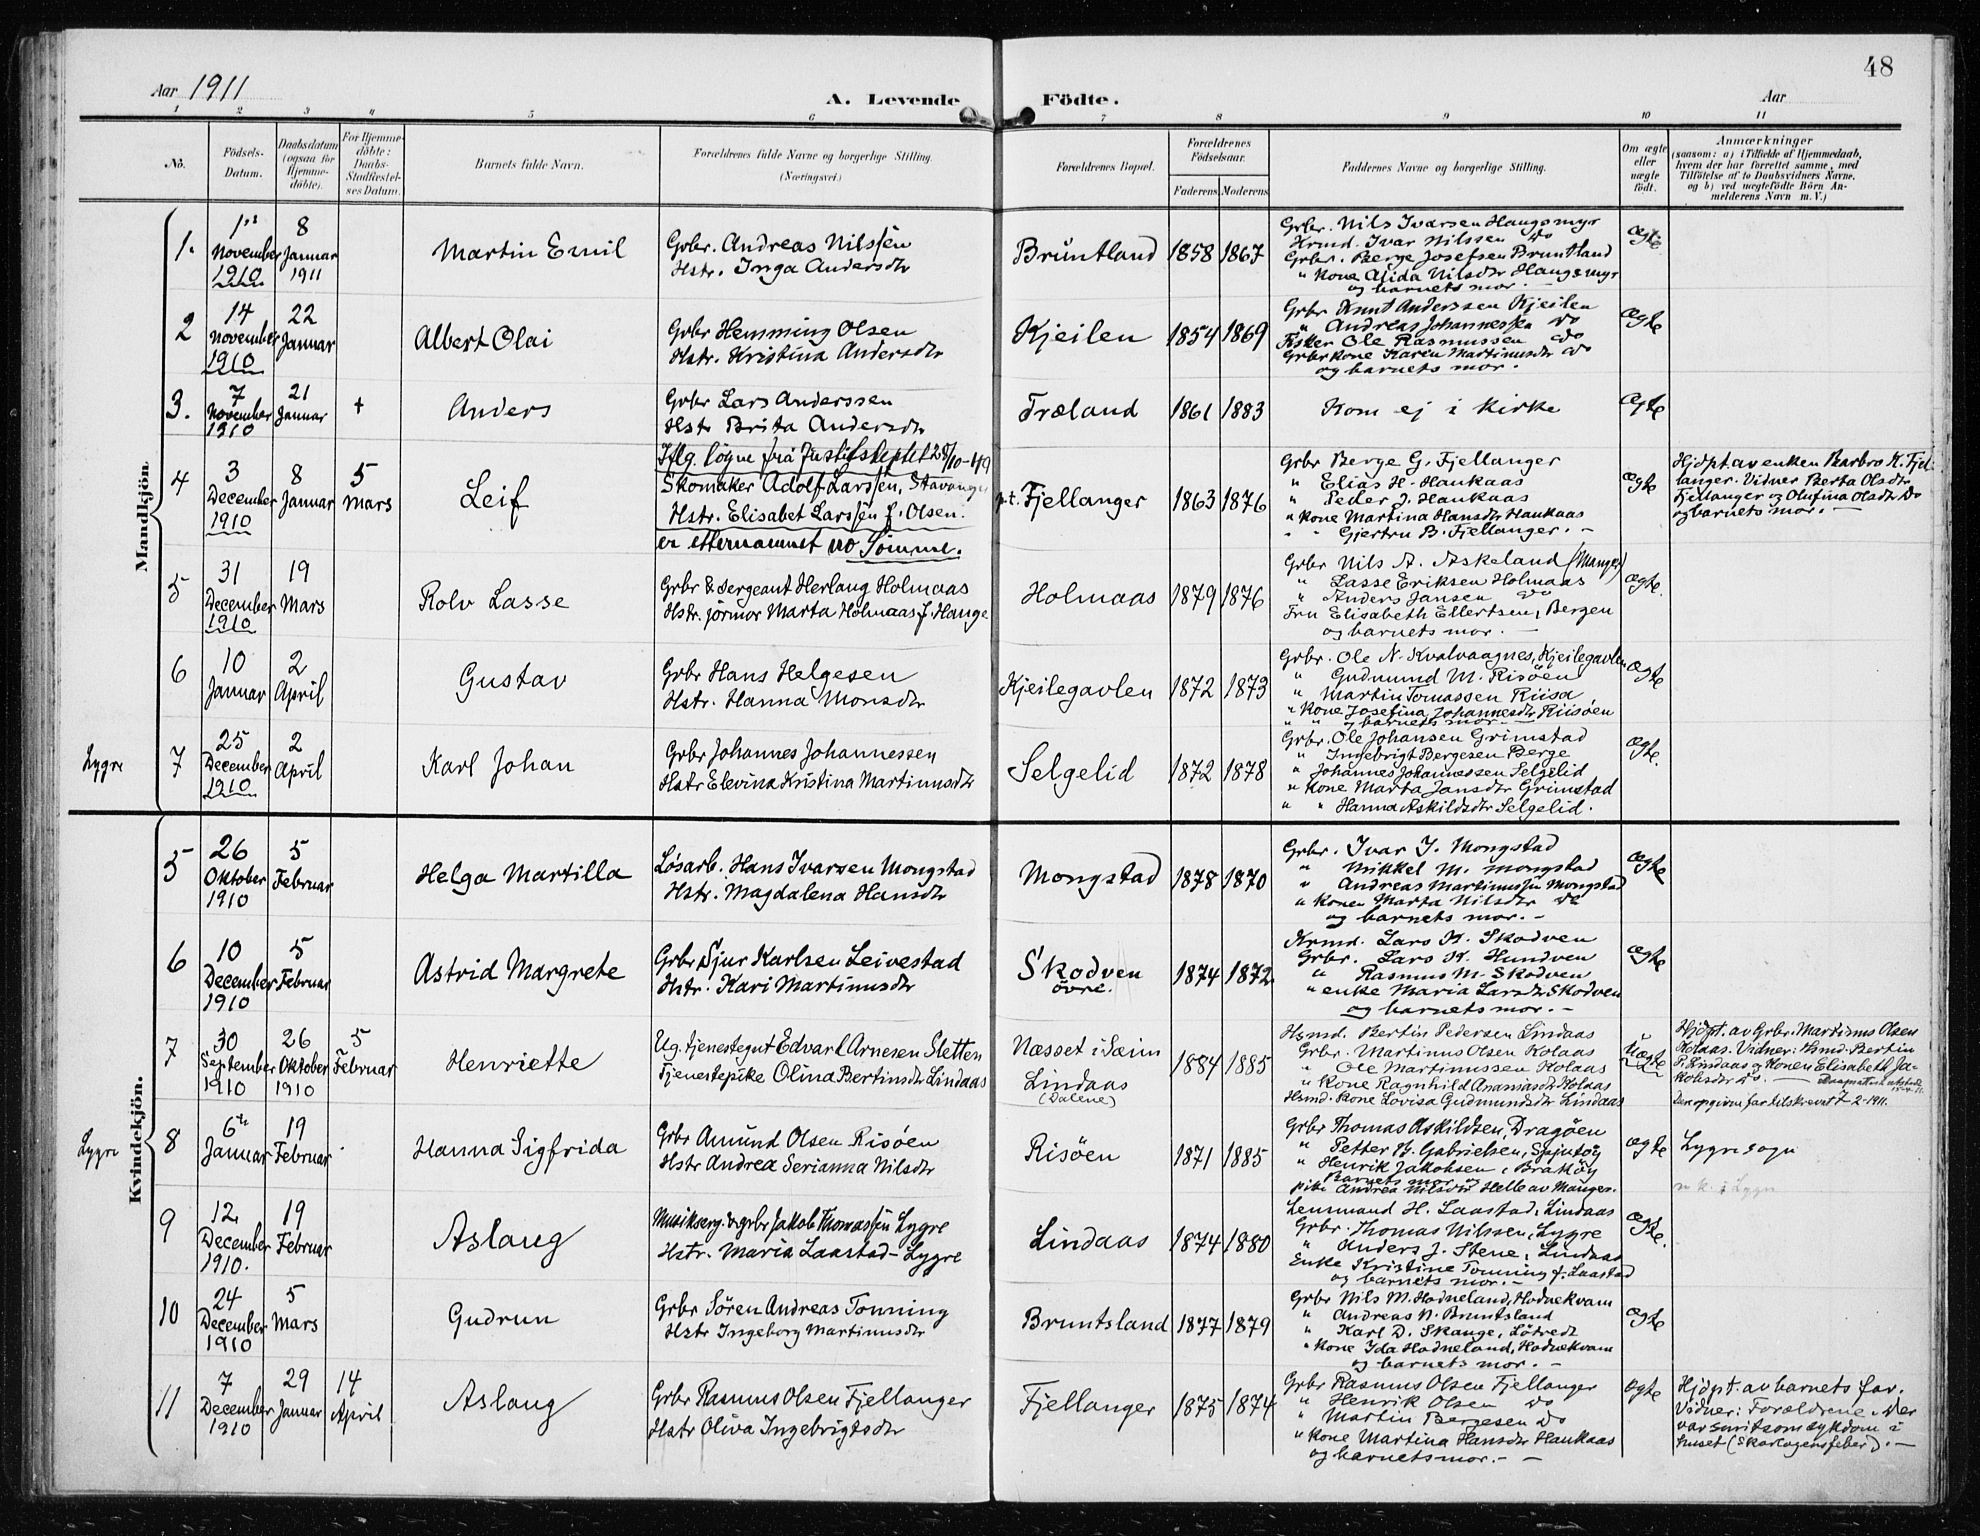 48
Aar 1911
A. Levende Födte.
Aar
1 2 3 4 5 6 7 8 9 10 11
No.
Födsels-Datum.
Daabsdatum (ogsaa for Hjemme-döbte).
For Hjemme-döbte: Daabs-Stadfæstel-ses Datum.
Barnets fulde Navn.
Forældrenes fulde Navne og borgerlige Stilling. (Næringsvei.)
Forældrenes Bopæl.
Forældrenes Födselsaar.
Faderens Moderens
Faddernes Navne og borgerlige Stilling.
Om ægte eller uægte födt.
Anmærkninger
(saasom: a) i Tilfælde af Hjemmedaab, hvem der har forrettet samme, med Tilföielse af to Daabsvidners Navne, og b) ved uægtefödte Börn An-melderens Navn m. V.)
Mandkjön.
1. 1ste November 1910
8 Januar 1911
Martin Emil
Grbr. Andreas Nilssen
Hstr. Inga Andersdtr
Bruntland 1858 1867
Grbr. Nils Ivarsen Haugsmyr
Krmd. Ivar Nilssen Do
Grbr. Berge Josefsen Bruntland
" Kone Alida Nilsdtr Haugsmyr
og barnets mor. -
Ægte
2 14 November 1910
22 Januar
Albert Olai
Grbr Hemming Olsen
Hstr. Kristina Andersdtr
Kjeilen 1854 1869
Grbr Knut Anderssen Kjeilen
" Andreas Johannessen Do
Fisker Ole Rasmussen Do
Grbr kone Karen Martinusdtr Do
og barnets mor.
Ægte
3. 7 November 1910
21 Januar +
Anders
Grbr Lars Anderssen
Hstr Brita Andersdtr
Træland 1861 1883
Kom ej i kirke
Ægte
4 3 December 1910
8 Januar
5 Mars
Leif
Iflg. løyve frå Justisdeptet 28/10-49
Skomaker Adolf Larssen, Stavanger
Hstr. Elisabet Larssen f. Olsen.
er etternamnet no Sømme.
p.t. Fjellanger 1863 1876
Grbr Berge G. Fjellanger
" Elias H. Haukaas
" Peder J. Haukaas
" Kone Martina Hansdtr Haukaas
" " Gjertru B. Fjellanger. -
Ægte
Hjdpt. av enken Barbro K. Fjel-
langer. Vidner Berta Olsdtr
Fjellanger og Olufina Olsdtr Do
og barnets mor. -
5 31 December 1910
19 Mars
Rolv Lasse
Grbr & sergeant Herlaug Holmaas
Hstr. jormor Marta Holmaas f. Hauge
Holmaas 1879 1876
Grbr Nils A. Askeland (Manger)
" Lasse Eriksen Holmaas
" Anders Jansen Do
Fru Elisabeth Ellertsen, Bergen
og barnets mor. -
Ægte.
6 10 Januar
2 April
Gustav
Grbr Hans Helgesen
Hstr. Hanna Monsdtr
Kjeilegavlen 1872 1873
Grbr. Ole N. Kvalvaagnes, Kjeilegavlen
" Gudmund M. Risøen
" Martin Tomassen Riisa
" Kone Josefina Johannesdtr Riisøen
" " og barnets mor -
Ægte
Lygre
7 25 December 1910
2 April
Karl Johan
Grbr Johannes Johannessen
Hstr Elevina Kristina Martinusdtr
Selgelid 1872 1878
Grbr. Ole Johansen Grimstad
" Ingebrigt Bergesen Berge
" Johannes Johannessen Selgelid
" Kone Marta Jansdtr Grimstad
" " Hanna Askildsdtr Selgelid.
Ægte.
Kvindekjön.
5 26 Oktober 1910
5 Februar
Helga Martilla
Løsarb. Hans Ivarsen Mongstad
Hstr. Magdalena Hansdtr
Mongstad 1878 1870
Grbr. Ivar J. Mongstad
" Mikkel M. Mongstad
" Andreas Martinussen Mongstad
" Konen Marta Nilsdtr Do
og barnets mor. -
Ægte
6 10 December 1910
5 Februar
Astrid Margrete
Grbr Sjur Karlsen Leivestad
Hstr. Kari Martinusdtr
Skodven øvre. 1874 1872
Krmd. Lars K. Skodven
Grbr. Lars K. Hundven
" Rasmus M. Skodven
" enke Maria Larsdtr Skodven
og barnets mor. -
Ægte
7 30 September 1910
26 Oktober 1910
5 Februar
Henriette
Ug. tjenestegut Edvard Arnesen Sletten
Tjenestepike Olina Bertinsdtr Lindaas
Næsset i Sæim
Lindaas (Dalene)
1884 1885
Hsmd. Bertin Pedersen Lindaas
Grbr. Martinus Olsen Kolaas
" Ole Martinussen Kolaas
" Kone Ragnhild Ananiasdtr Kolaas
Hsmd. Kone Lovisa Gudmundsdtr Lindaas
Uægte
Hjdpt. av Grbr. Martinus Olsen
Kolaas. Vidner: Hsmd. Bertin
P. Lindaas og Konen Elisabeth Ja-
kobsdtr Do. -
Den opgivne far tilskrevet 7-2-1911.
Lygre
8 6te Januar
19 Februar
Hanna Sigfrida
Grbr Amund Olsen Risøen
Hstr Andrea Serianna Nilsdtr
Risøen 1871 1885
Grbr Thomas Askildsen, Dragøen
" Petter B. Gabrielsen, Spjutøy
" Henrik Jakobsen, Brattøy
Barnets mor og
pike Andrea Nilsdtr Helle av Manger.
Ægte
Lygre sogn
9 12 December 1910.
19 Februar
Aslaug
Musikserg. & grbr Jakob Thomassen Lygre
Hstr. Maria Laastad-Lygre
Lindaas 1874 1880
Lensmand H. Laastad, Lindaas
Grbr. Thomas Nilssen, Lygre
" Anders J. Stene, Lindaas
Enke Kristine Tonning f. Laastad
og barnets mor. -
Ægte.
10 24 December 1910
5 Mars
Gudrun
Grbr Sören Andreas Tonning
Hstr Ingeborg Martinusdtr
Bruntsland 1877 1879
Grbr Nils M. Hodneland, Hodnekvam
" Andreas N. Bruntsland
" Karl D. Skauge, Løtvedt
" Kone Ida Hodneland, Hodnekvam
og barnets mor. -
Ægte
11 7 December 1910
29 Januar
14 April
Aslaug
Grbr Rasmus Olsen Fjellanger
Hstr Oliva Ingebrigtsdtr
Fjellanger 1875 1874
Grbr Rasmus Olsen Fjellanger
" Henrik Olsen Do
" Martin Bergesen Do
" Kone Martina Hansdtr Haukaas
og barnets mor. - -
Ægte
Hjdpt. av barnets far.
Vidner: Forældrene. Der
var smitsom sykdom i
huset (Skarlagensfeber). -